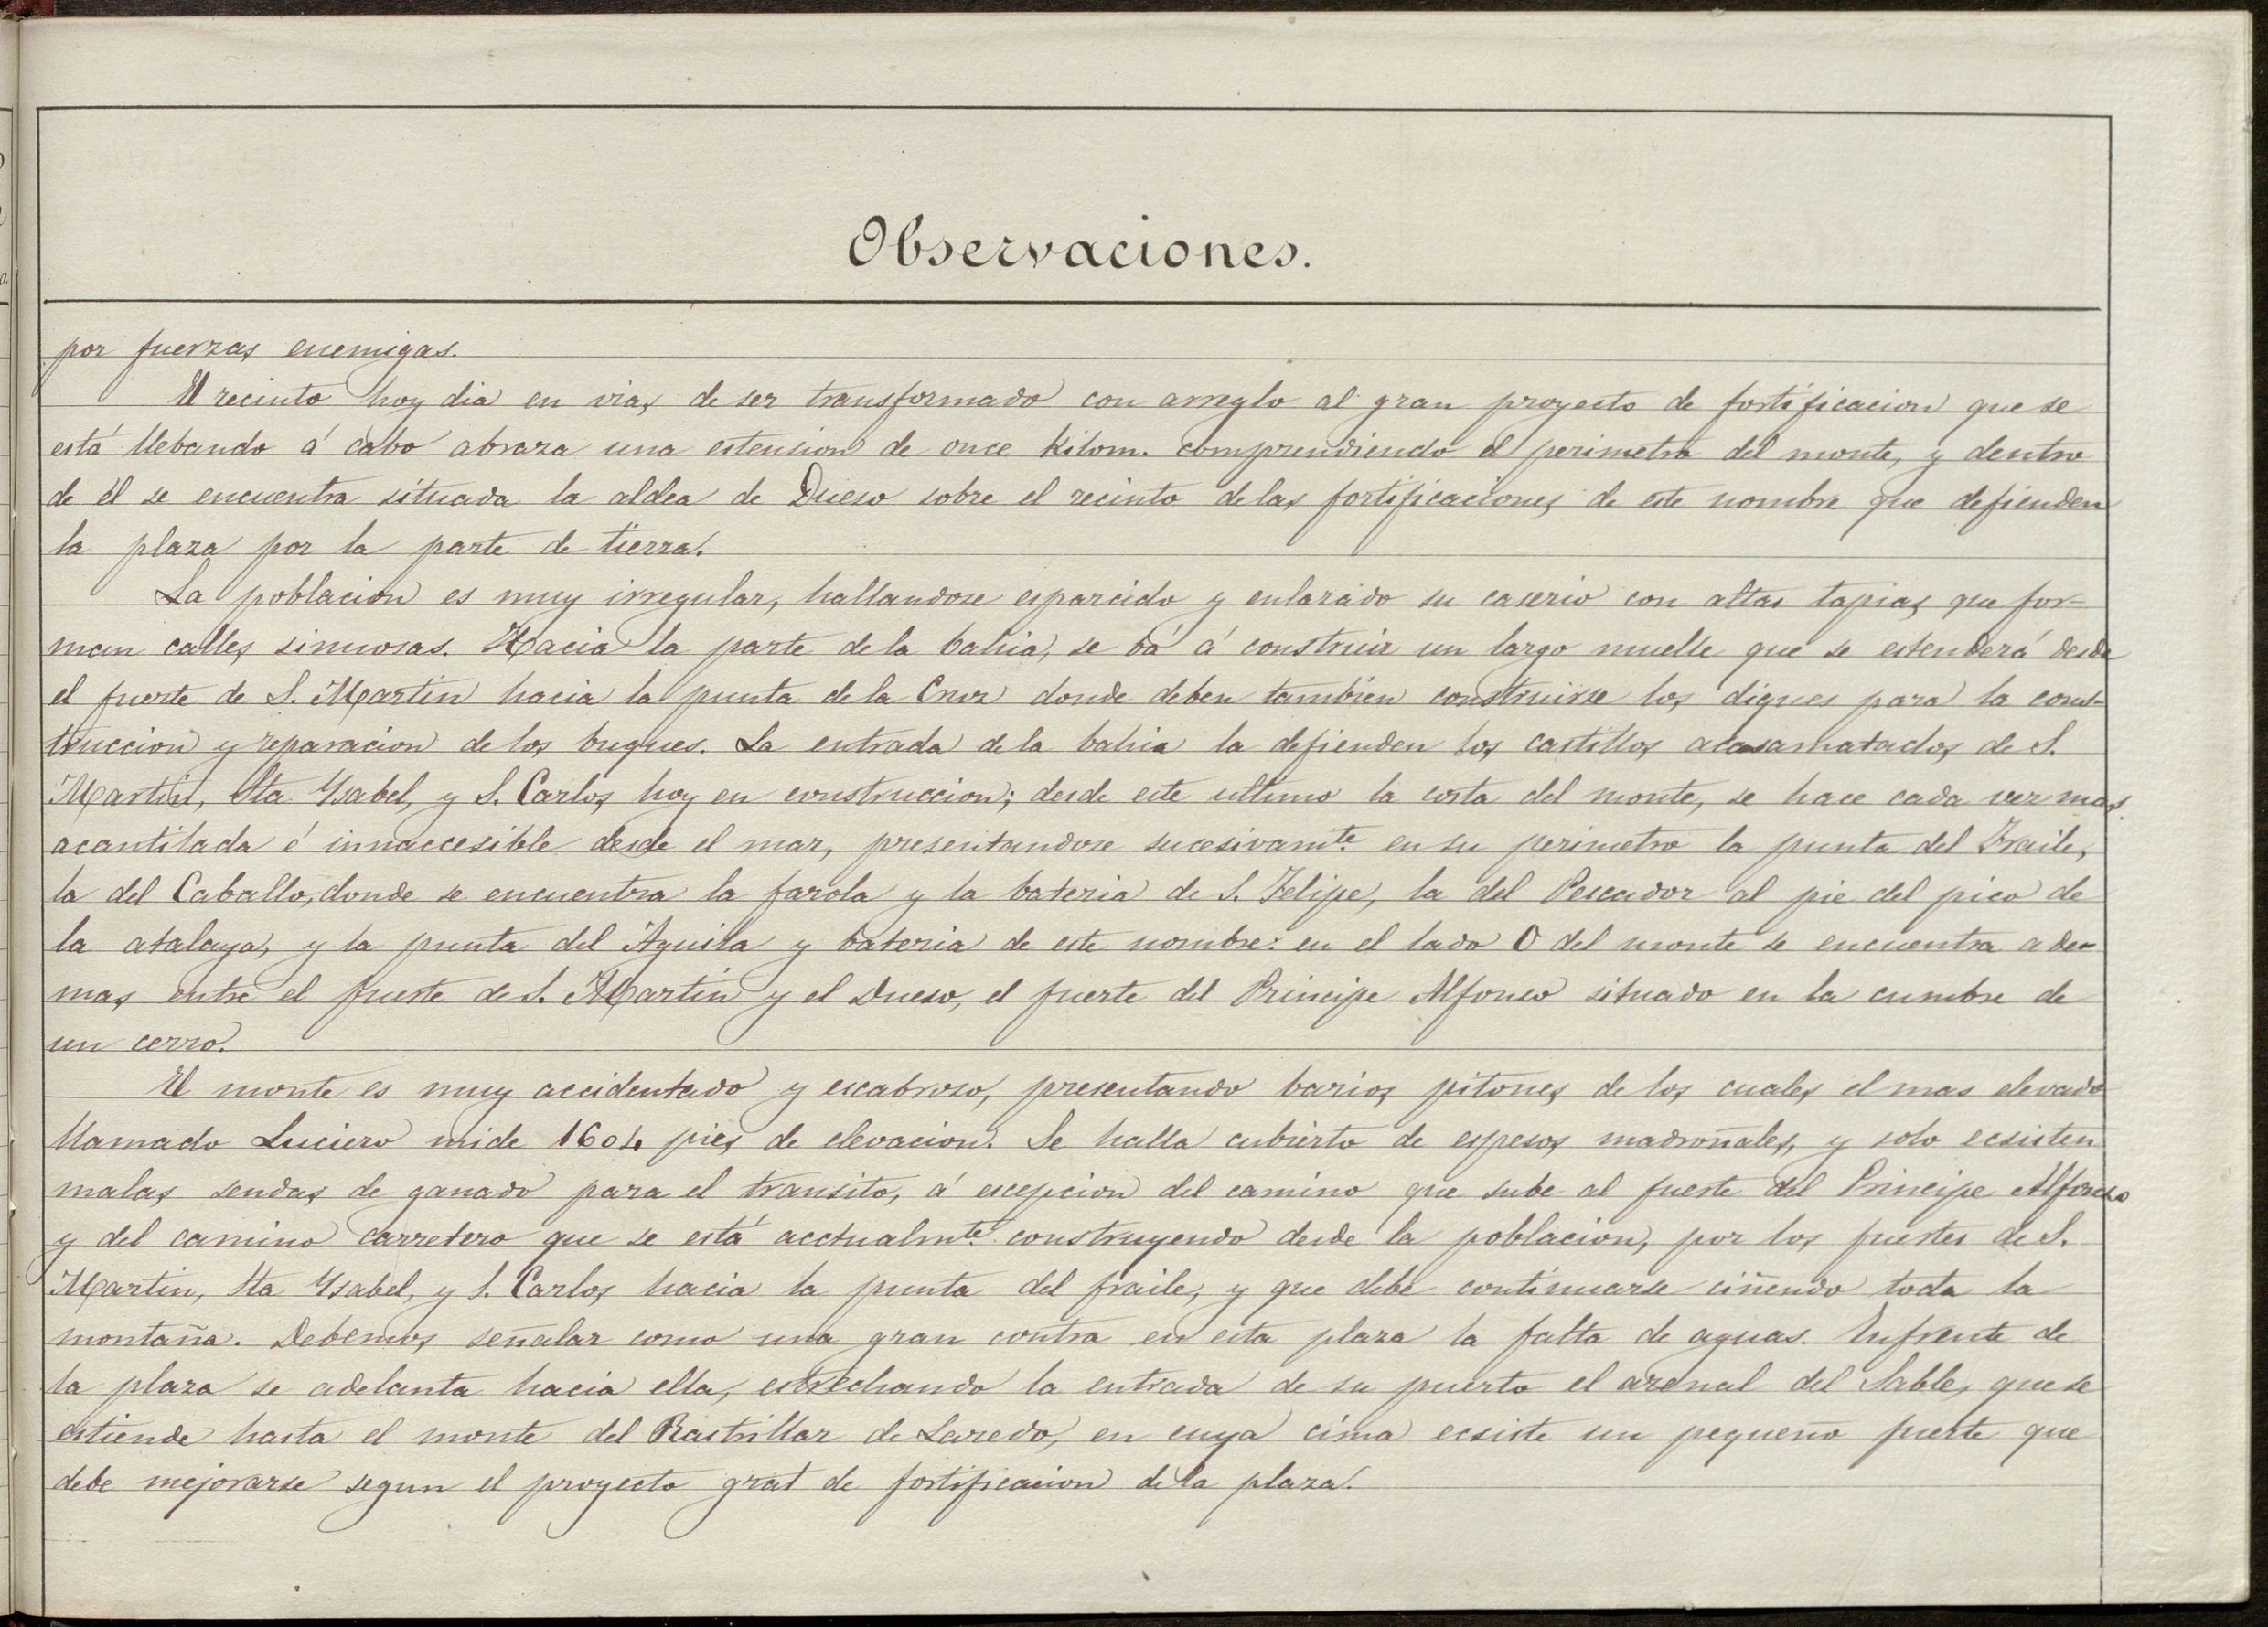 Observaciones.
por fuerzas enemigas.
El recinto hoy dia en vias de ser transformado con arreglo al gran proyecto de fortificacion que se
está llebando á cabo abraza una estension de once Kilom. comprendiendo el perimetro del monte, y dentro
de él se encuentra situada la aldea de Dueso sobre el recinto de las fortificaciones de este nombre que defienden
la plaza por la parte de tierra.
La poblacion es muy irregular, hallandose esparcido y enlazado su caserio con altas tapias que for-
man calles sinuosas. Hacia la parte de la bahia, se bá á construir un largo muelle que se estenderá desde
el fuerte de S. Martin hacia la punta de la Cruz donde deben tambien construirse los diques para la cons-
truccion y reparacion de los buques. La entrada de la bahia la defienden los castillos acasamatados de S.
Martin, Sta Ysabel, y S. Carlos hoy en construccion; desde este ultimo la costa del monte, se hace cada vez mas
acantilada é innaccesible desde el mar, presentandose sucesivamte. en su perimetro la punta del Fraile,
la del Caballo, donde se encuentra la farola y la bateria de S. Felipe, la del Pescador al pie del pico de
la atalaya, y la punta del Aguila y bateria de este nombre: en el lado O del monte se encuentra ade-
mas entre el fuerte de S. Martin y el Dueso, el fuerte del Principe Alfonso situado en la cumbre de
un cerro.
El monte es muy accidentado y escabroso, presentando barios pitones de los cuales el mas elevado
llamado Luciero mide 1604 pies de elevacion. Se halla cubierto de espesos madroñales, y solo ecsisten
malas sendas de ganado para el transito, á escepcion del camino que sube al fuerte del Principe Alfonso
y del camino carretero que se está acctualmte. construyendo desde la poblacion, por los fuertes de S.
Martin, Sta Ysabel, y S. Carlos hacia la punta del fraile, y que debe continuarse ciñendo toda la
montaña. Debemos señalar como una gran contra en esta plaza la falta de aguas. Enfrente de
la plaza se adelanta hacia ella, estrechando la entrada de su puerto el arenal del Sable, que se
estiende hasta el monte del Rastrillar de Laredo, en cuya cima ecsiste un pequeño fuerte que
debe mejorarse segun el proyecto gral de fortificacion de la plaza.